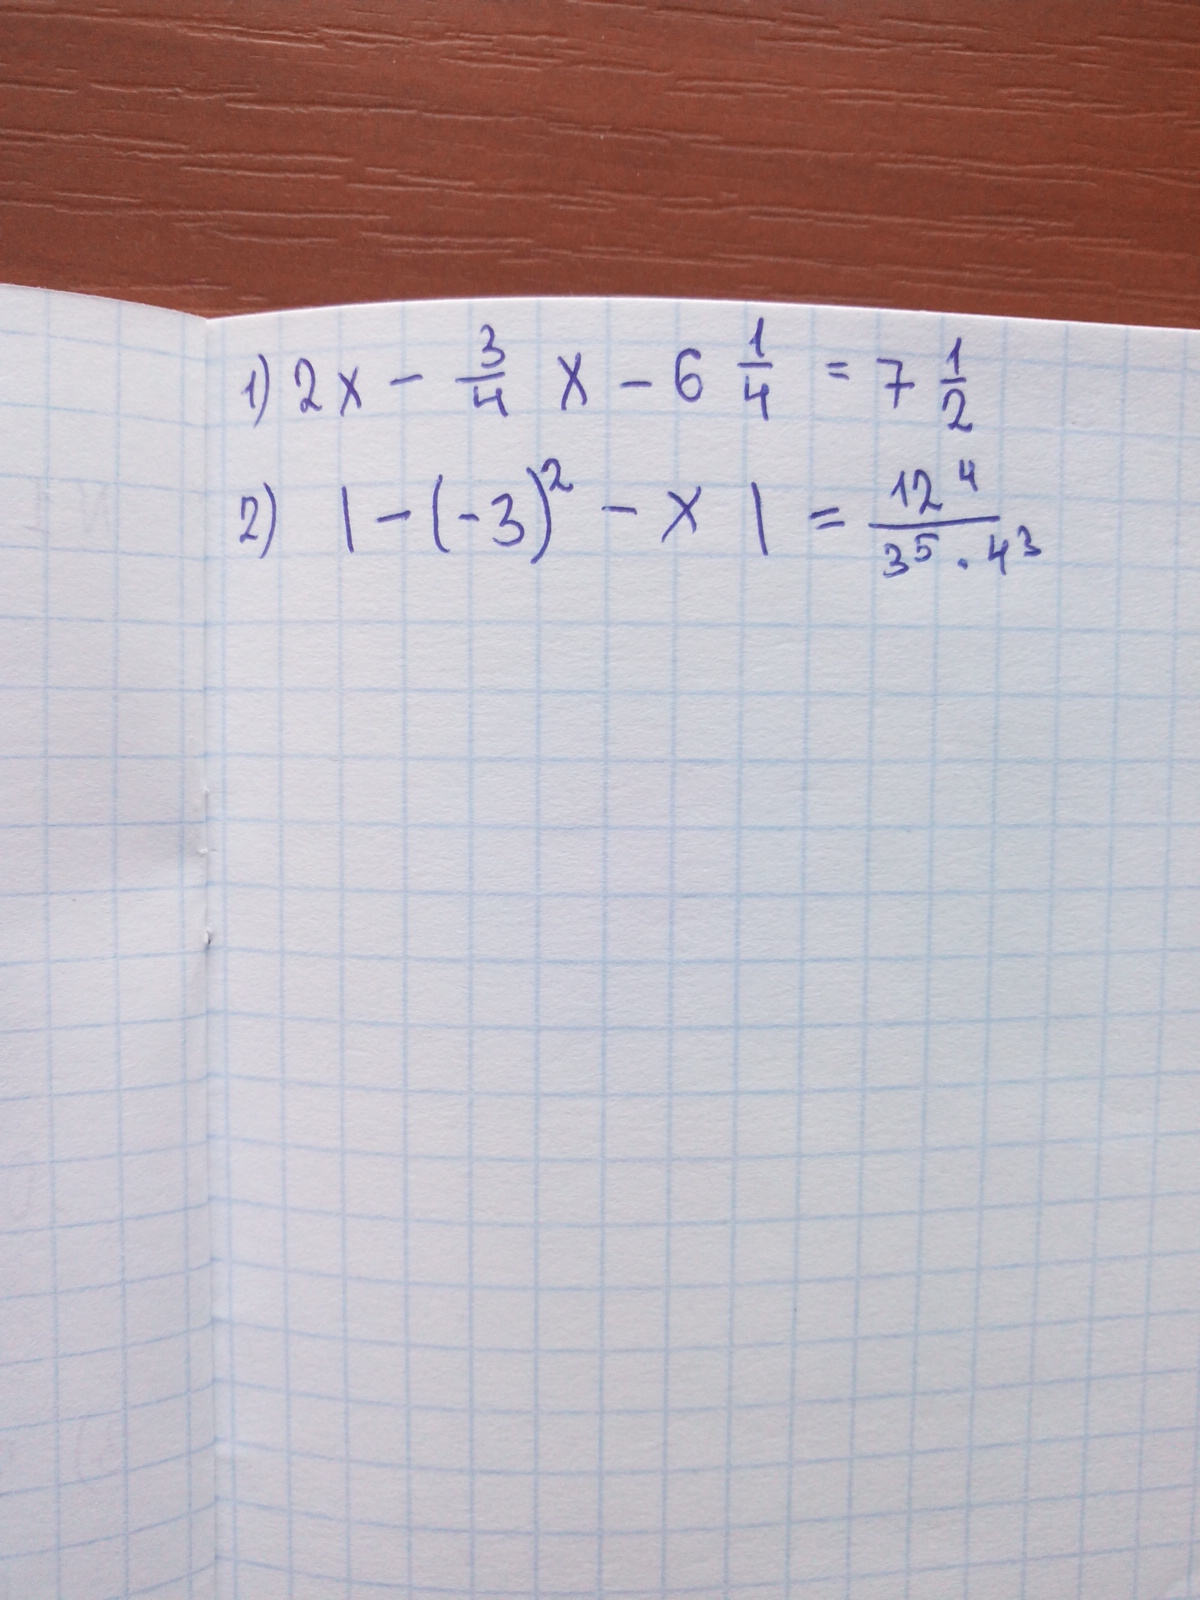 1) 2x - 3/4 x - 6 1/4 = 7 1/2
2) |-(-3)² - x| = 12⁴/3⁵·4³